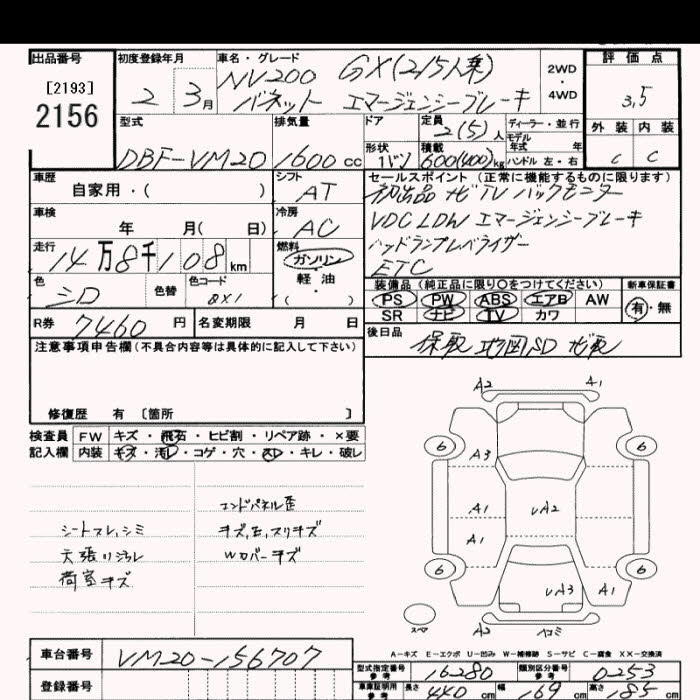 出品番号 初度登録年月 車名・グレード 評価点
[2193] NV200 GX(2/5人乗) 2WD・
2156 2 3月 バネット エマージェンシーブレーキ 4WD 3,5
型式 排気量 ドア 定員 ディーラー・並行 外装 内装
2(5)人 モデル
形状 積載 年式 年
DBF-VM20 1600cc 1バン 600(400)kg ハンドル 左・右 C C
車歴 シフト セールスポイント(正常に機能するものに限ります)
自家用・( ) AT 初出品 ナビTV バックモニター
車検 冷房 VDC LDW エマージェンシーブレーキ
年 月( 日) AC ヘッドランプレベライザー
走行 燃料 ETC
14万8千108km ガソリン
軽油
・( )
色 色替 色コード 装備品(純正品に限り○をつけてください) 新車保証書
シロ QX1 PS PW ABS エアB AW 有・無
SR ナビ TV カワ
R券 7460円 名変期限 月 日 後日品
注意事項申告欄(不具合内容等は具体的に記入して下さい) 保取 地図SD ナビ取
修復歴 有 〔箇所 〕
検査員 FW キズ・飛石・ヒビ割・リペア跡・×要
記入欄 内装 キズ・汚レ・コゲ・穴・スレ・キレ・破レ
エンドパネル歪
シートスレ,シミ キズ,E,スリキズ
天張リ汚レ Wカバーキズ
荷室キズ
A2 A1
6 A3 6
A1 UA2
A1
6 6
UA3 A1
スペア A2 Aコミ
A-キズ E-エクボ U-凹み W-補修跡 S-サビ C-腐食 XX-交換済
車台番号 VM20-156707
型式指定番号 参考 16280 類別区分番号 参考 0253
登録番号 車庫証明用 参考 長さ 440cm 幅 169cm 高さ 185cm